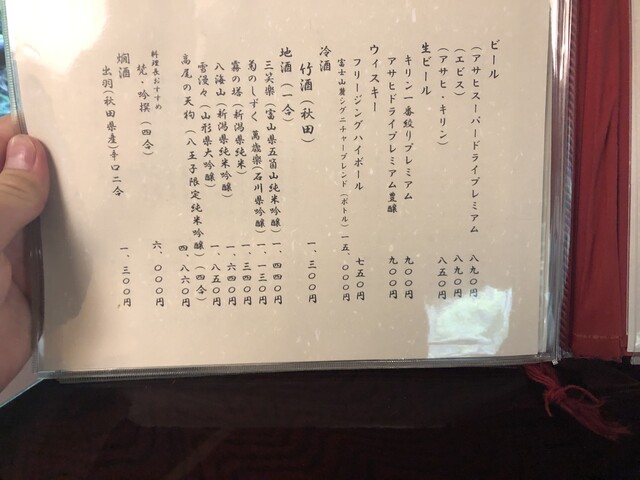 ビール
（アサヒスーパードライプレミアム 八九〇円
（エビス） 八九〇円
（アサヒ・キリン） 八五〇円
生ビール
キリン一番絞りプレミアム 九〇〇円
アサヒドライプレミアム豊醸 九〇〇円
ウィスキー
フリージングハイボール 七五〇円
富士山麓シグニチャーブレンド（ボトル）一五、〇〇〇円
冷酒
竹酒（秋田） 一、三〇〇円
地酒（一合）
三笑楽（富山県五箇山純米吟醸） 一、四四〇円
菊のしずく 萬歳楽（石川県吟醸） 一、一三〇円
霧の塔（新潟県純米） 一、三四〇円
八海山（新潟県純米吟醸） 一、六四〇円
雪漫々（山形県大吟醸） 一、八五〇円
高尾の天狗（八王子限定純米吟醸）（四合） 四、八六〇円
料理長おすすめ
梵・吟撰（四合） 六、〇〇〇円
燗酒
出羽（秋田県産）辛口二合 一、三〇〇円